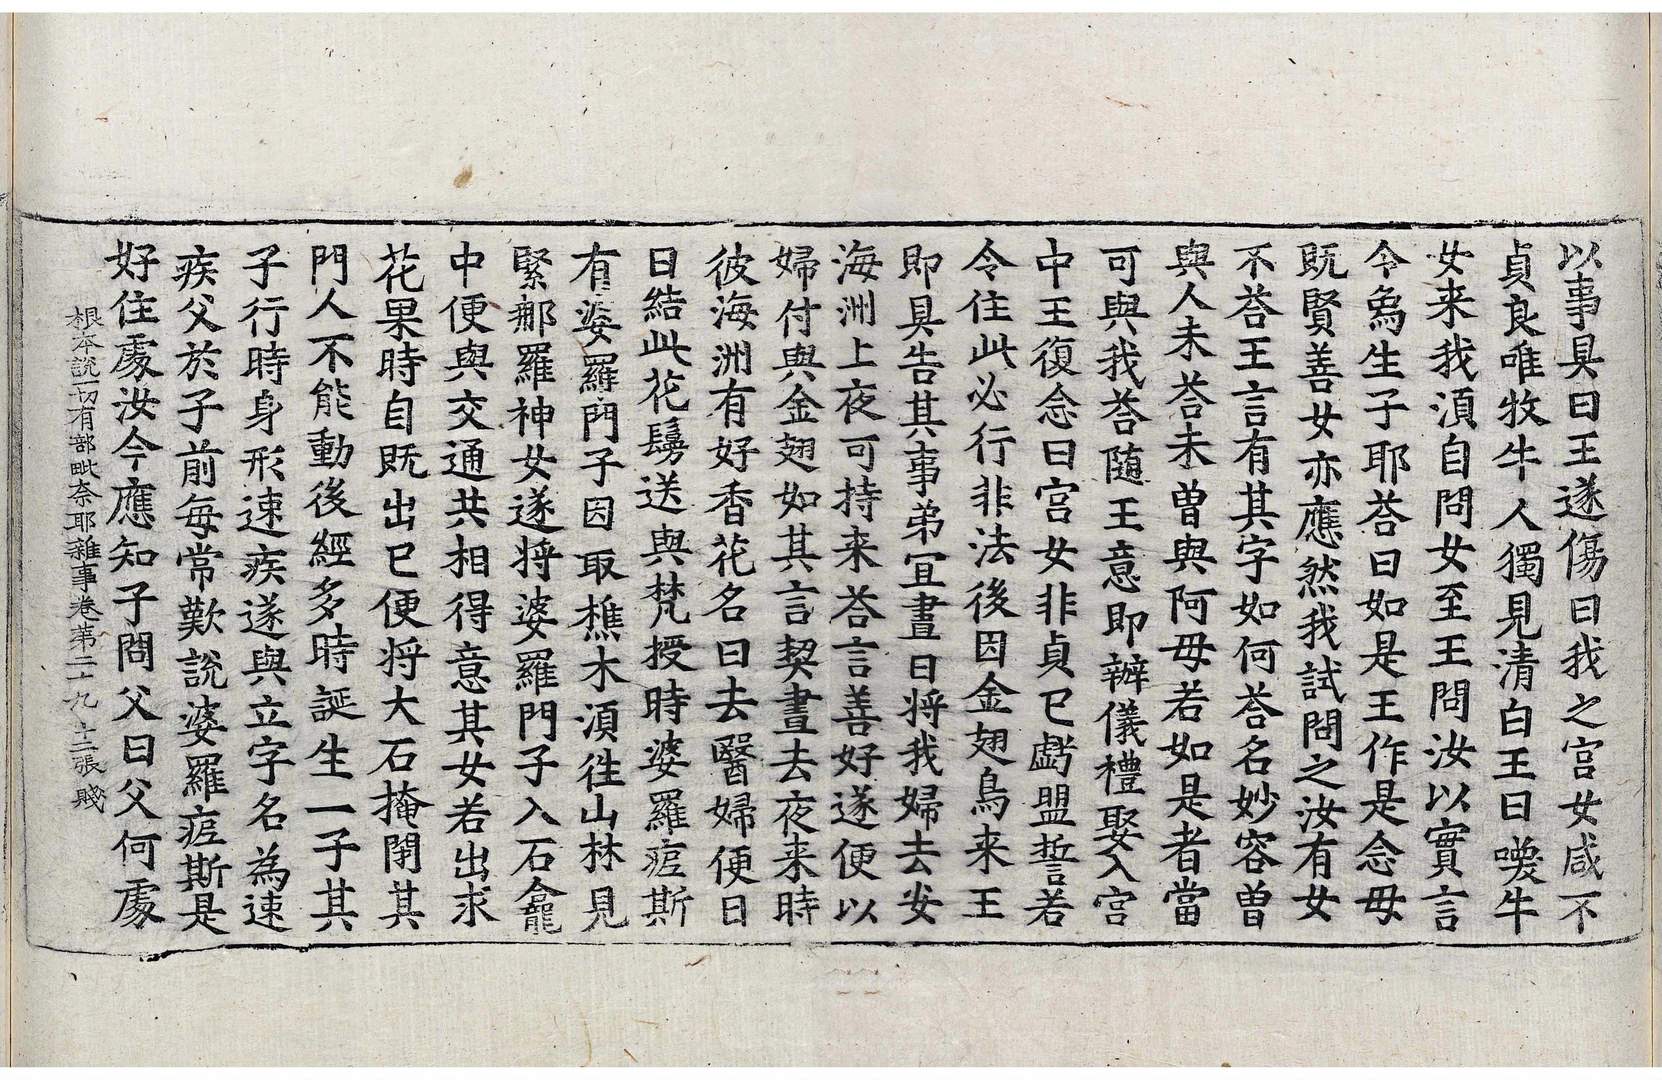 以事具曰王遂傷曰我之宫女咸不
貞良唯牧牛人獨見清白王曰喚牛
女来我湏自問女至王問汝以實言
令為生子耶荅曰如是王作是念母
既賢善女亦應然我試問之汝有女
不荅王言有其字如何荅名妙容曽
與人未荅未曽與阿母若如是者當
可與我荅随王意即辦儀禮娶入宫
中王復念曰宫女非貞已戯盟誓若
令住此必行非法後因金翅鳥来王
即具告其事弟宜晝日将我婦去安
海洲上夜可持来荅言善好遂便以
婦付與金翅如其言契晝去夜来時
彼海洲有好香花名曰去醫婦便日
日結此花鬘送與梵授時婆羅痆斯
有婆羅門子因取樵木湏徃山林見
緊那羅神女遂将婆羅門子入石龕
中便與交通共相得意其女若出求
花果時自既出已便将大石掩閉其
門人不能動後經多時誕生一子其
子行時身形速疾遂與立字名為速
疾父於子前每常歎説婆羅痆斯是
好住處汝今應知子問父曰父何處
根本説一切有部毗奈耶雜事卷第二十九 十二張 賤